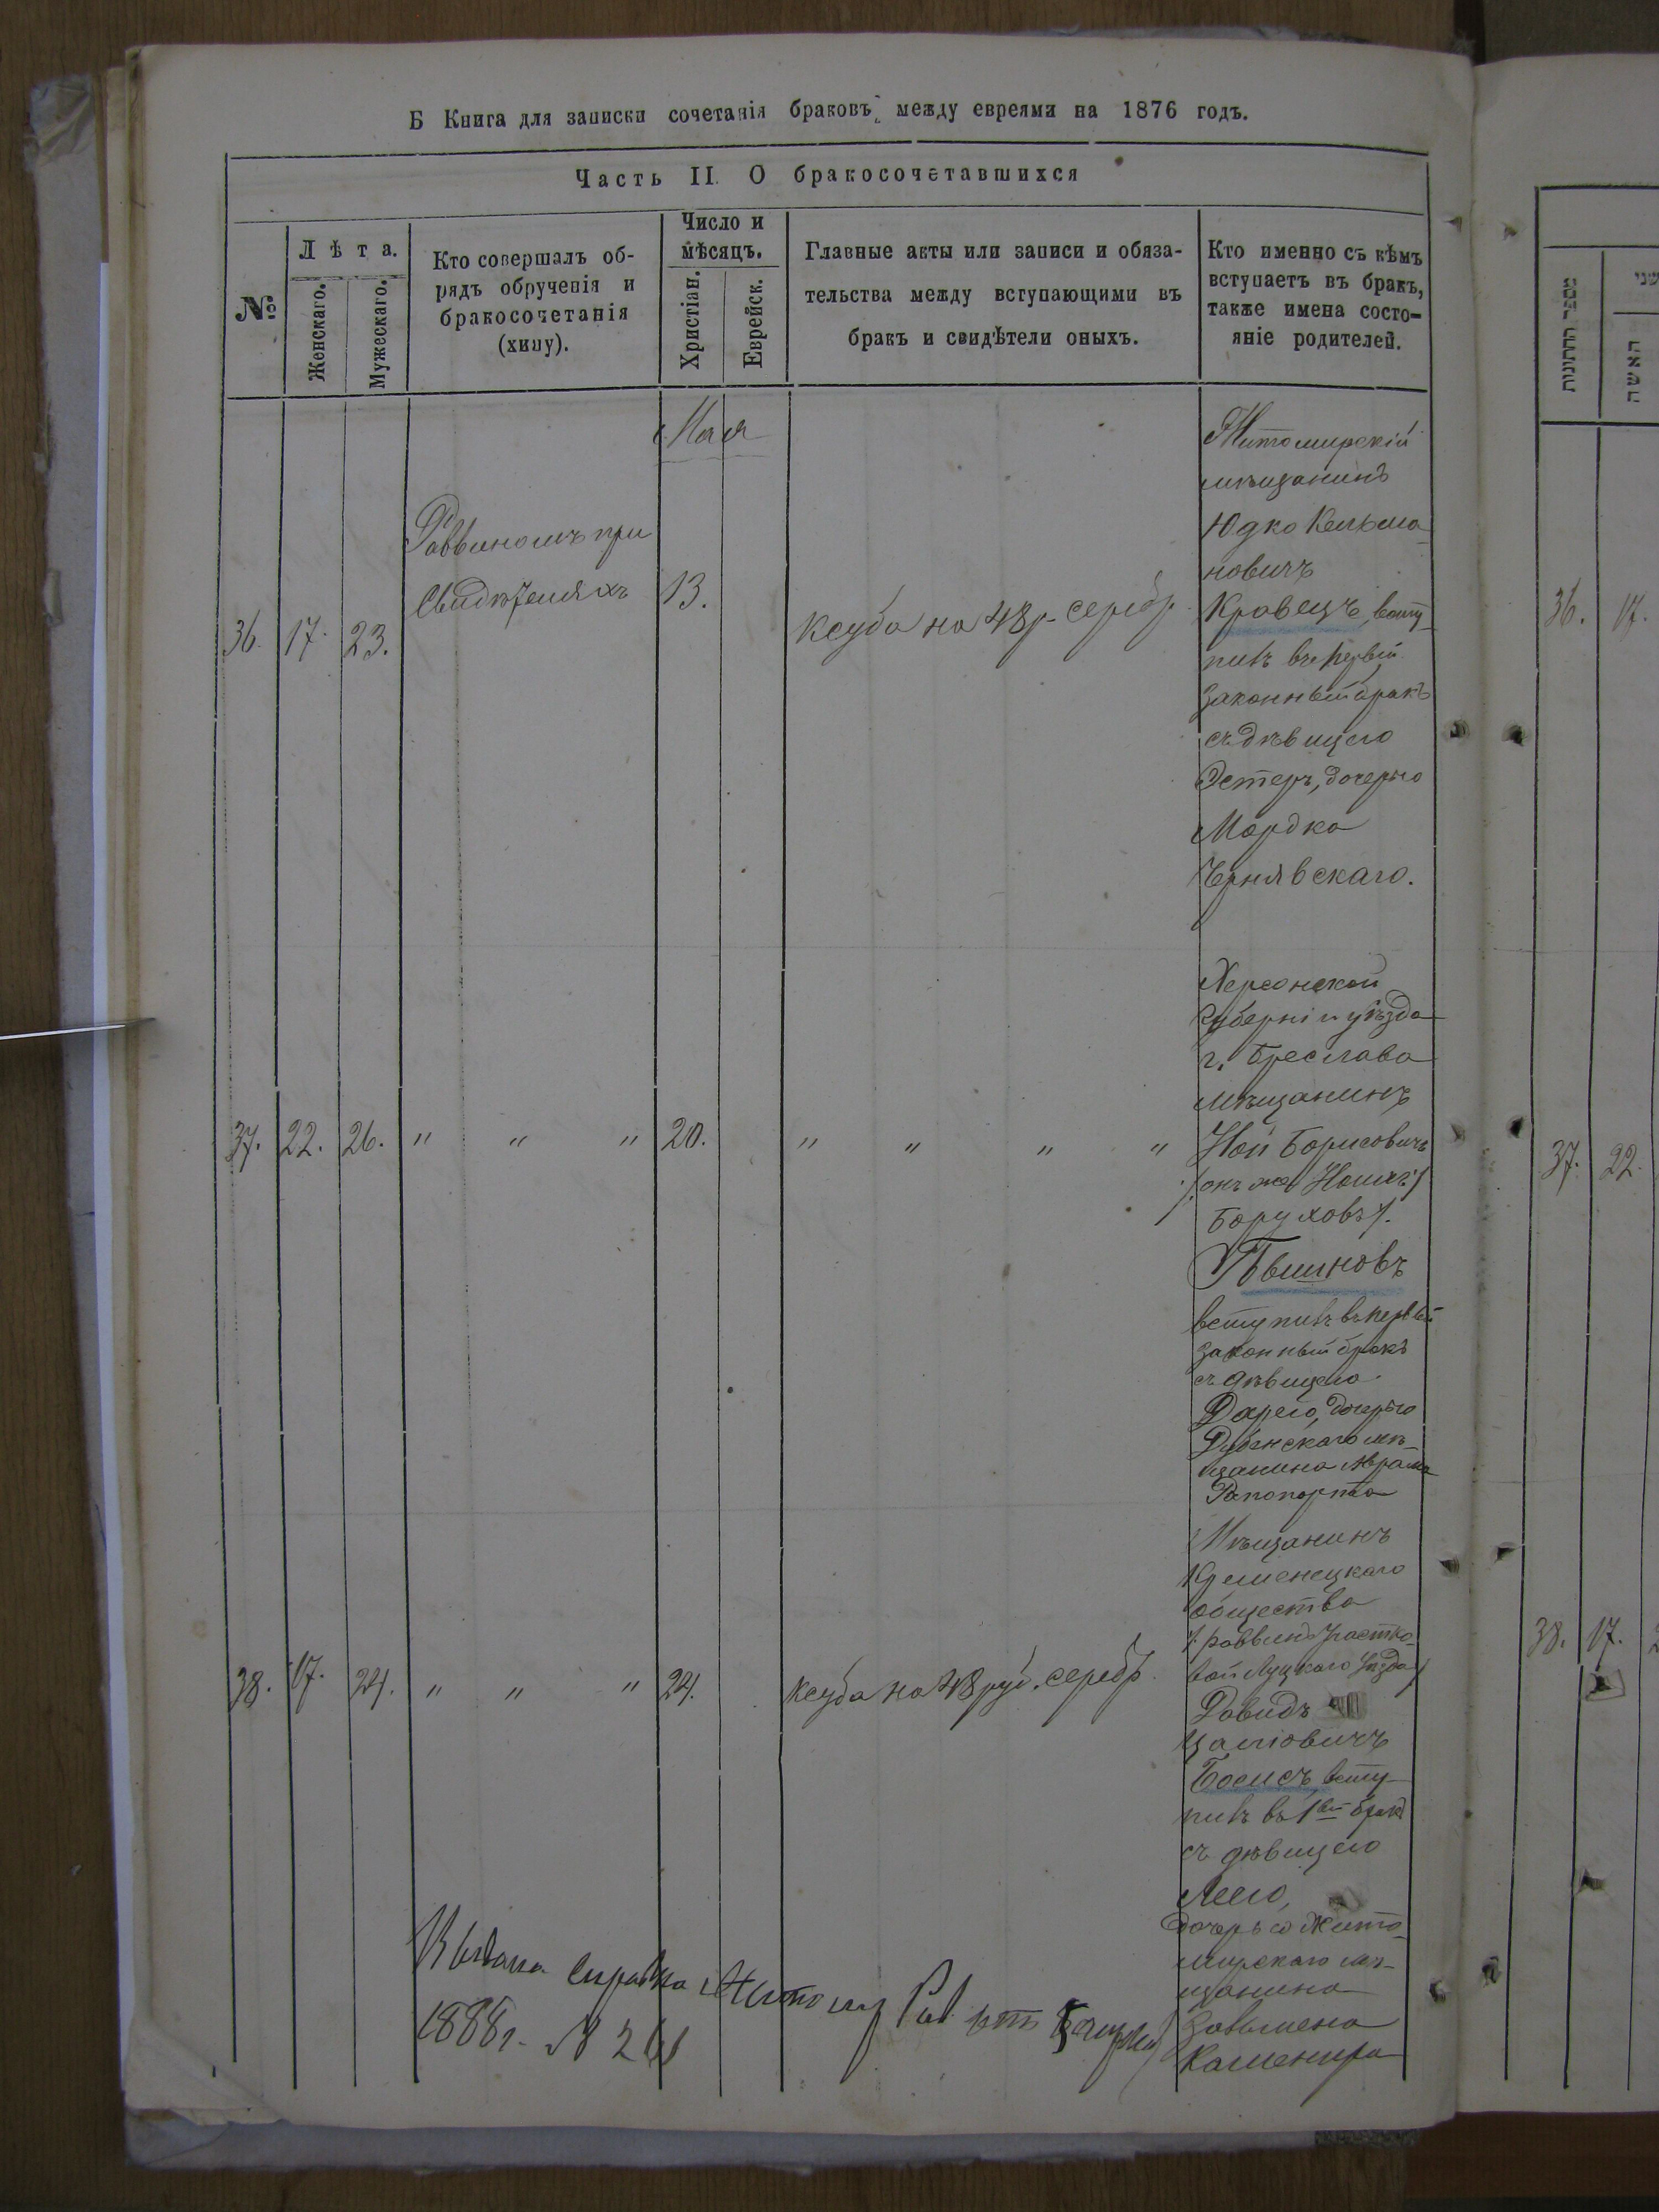 Б Книга для записки сочетанія браковъ между евреями на 1876 годъ.
Часть II. О бракосочетавшихся
№
Лѣта.
Женскаго.
Мужескаго.
Кто совершалъ об-
рядъ обрученія и
бракосочетанія
(хипу).
Число и
мѣсяцъ.
Христіан.
Еврейск.
Главные акты или записи и обяза-
тельства между вступающими въ
бракъ и свидѣтели оныхъ.
Кто именно съ кѣмъ
вступаетъ въ бракъ,
также имена состо-
яніе родителей.
Мая
36. 17. 23.
Раввиномъ при
Свидѣтеляхъ
13.
Ксуба на 48 р. серебр.
Житомирскій
мѣщанинъ
Юдко Кельма-
новичъ
Кравецъ, всту-
пилъ въ первый
законный бракъ
съ дѣвицею
Эстеръ, дочерью
Мордка
Чернявскаго.
37. 22. 26. " " " 20. " " " "
Херсонской
Губерніи уѣзда
г. Береслава
мѣщанинъ
Ной Борисовичъ
/: онъ же
Боруховъ /.
вступилъ въ первый
законный бракъ
съ дѣвицею
Дарею, дочерью
Дубенскаго мѣ-
щанина Аврама
Рапопорта
38. 17. 24. " " " 24.
Ксуба на 48 руб. серебр.
Мѣщанинъ
Кременецкаго
общества
Луцкаго Уѣзда/
Давидъ
Боисъ, всту-
пилъ въ 1вый бракъ
съ дѣвицею
Леею,
дочерью Жито-
мирскаго мѣ-
щанина
Завьмена
Каменира
Выдана справка
1888 г. №
מספר החתונות
שני
האשה
36. 17.
37. 22.
38. 17.